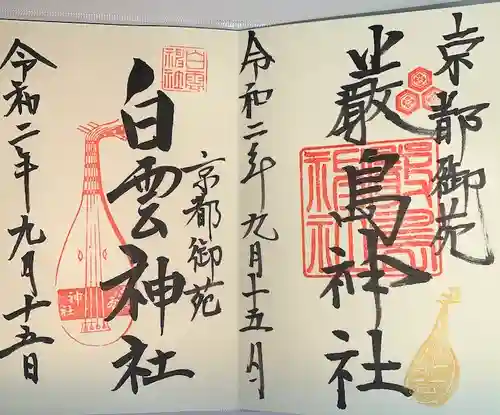 京都御苑
嚴島神社
令和二年九月十五日
京都御苑
白雲神社
白雲神社
令和二年九月十五日